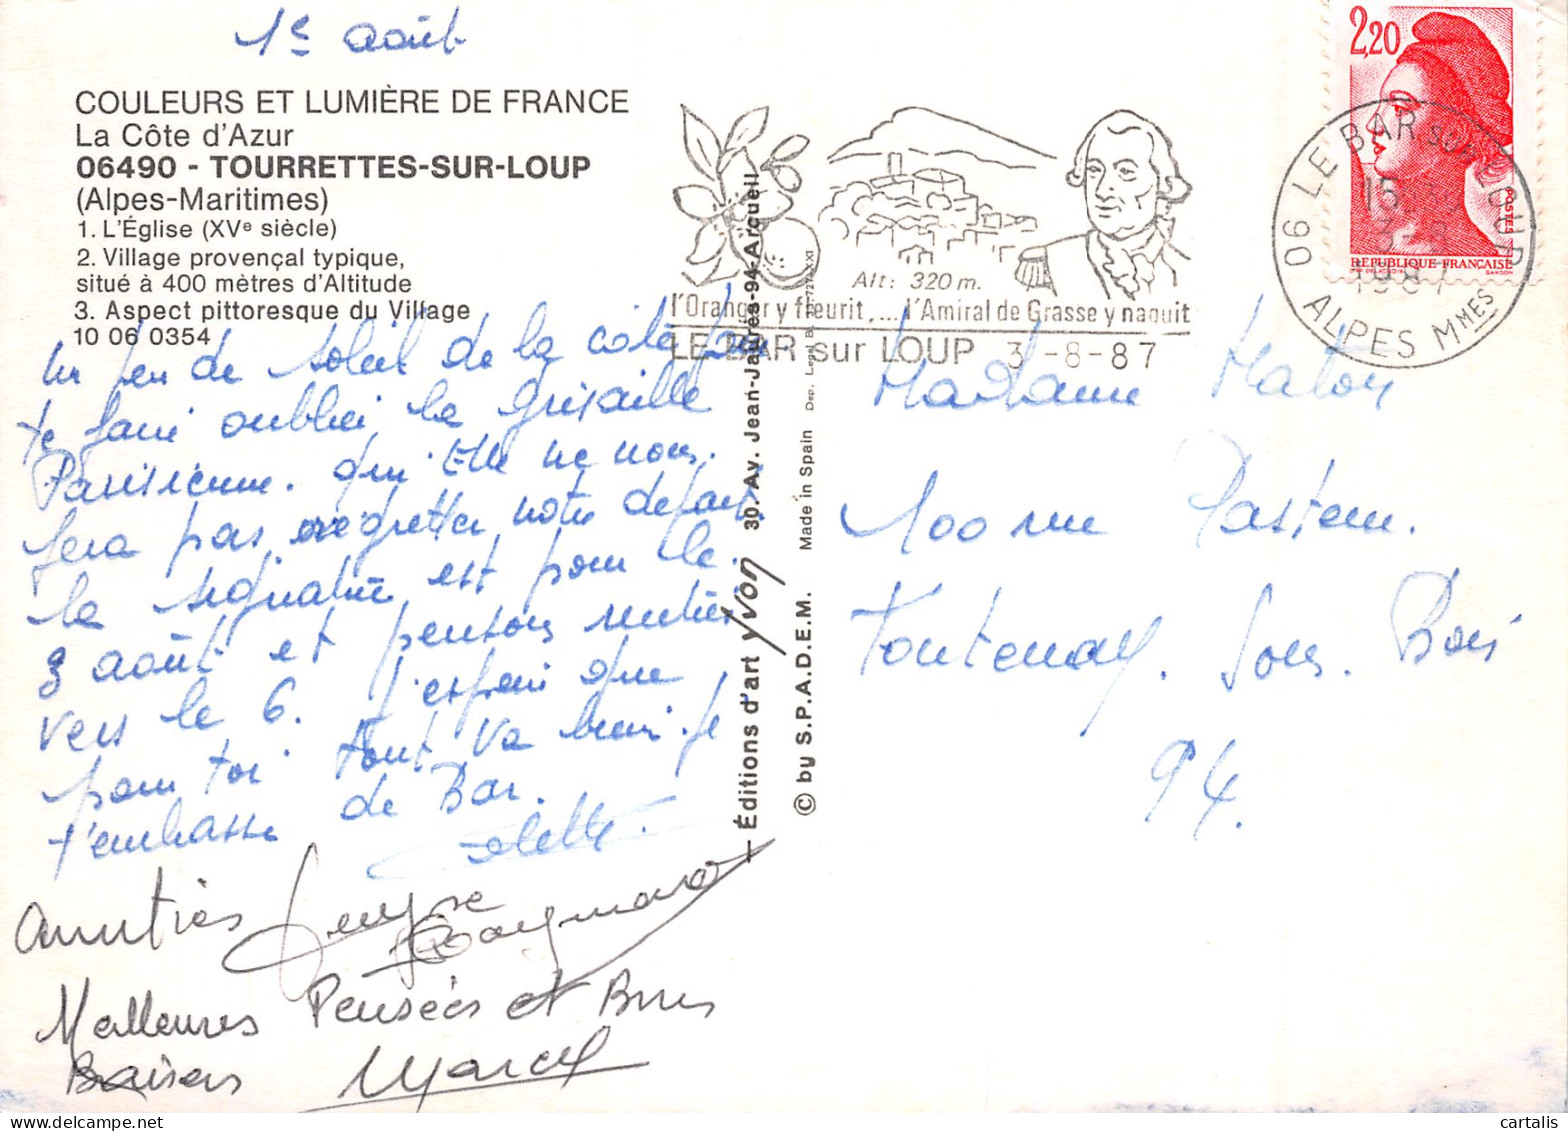 1er août
COULEURS ET LUMIÈRE DE FRANCE
La Côte d'Azur
06490 - TOURRETTES-SUR-LOUP
(Alpes-Maritimes)
1. L'Église (XVe siècle)
2. Village provençal typique,
situé à 400 mètres d'Altitude
3. Aspect pittoresque du Village
10 06 0354
Un peu de soleil de la côte pour
te faire oublier la grisaille
Parisienne. qui Elle ne nous
fera pas regretter notre départ.
la signature est pour le
3 août et pensons rentrer
vers le 6. J'espère que
pour toi tout va bien. je
t'embrasse de Bar.
Colette.
Amitiés
Meilleures Pensées et Bons
Baisers Marcel
— Éditions d'art yvon 30. Av. Jean-Jaurès-94-Arcueil
© by S.P.A.D.E.M. Made in Spain
Alt: 320 m.
l'Oranger y fleurit,... l'Amiral de Grasse y naquit
LE BAR sur LOUP 3 -8-87
2,20
POSTES
REPUBLIQUE FRANÇAISE
06 LE BAR SUR LOUP
3-8
1987
ALPES MMES
Madame
100 rue Pasteur.
Fontenay. Sous. Bois
94.
cartalis